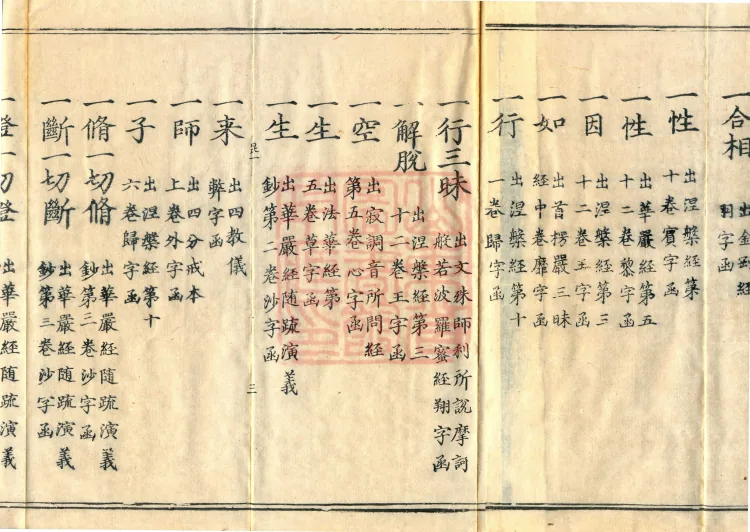 一合相
出金剛經
羽字函
一性
出涅槃經第
十卷賓字函
一性
出華嚴經第五
十二卷黎字函
一因
出涅槃經第三
十二卷王字函
一如
出首楞嚴三昧
經中卷靡字函
一行
出涅槃經第十
一卷歸字函
一行三昧
出文殊師利所說摩訶
般若波羅蜜經翔字函
一解脫
出涅槃經第三
十二卷王字函
一空
出寂調音所問經
第五卷心字函
一生
出法華經第
五卷草字函
一生
出華嚴經随䟽演義
鈔第二卷沙字函
一来
出四教儀
弊字函
一師
出四分戒本
上卷外字函
一子
出涅槃經第十
六卷歸字函
一脩一切脩
出華嚴經随䟽演義
鈔第三卷沙字函
一斷一切斷
出華嚴經随䟽演義
鈔第三卷沙字函
一證一切證
出華嚴經随䟽演義
三